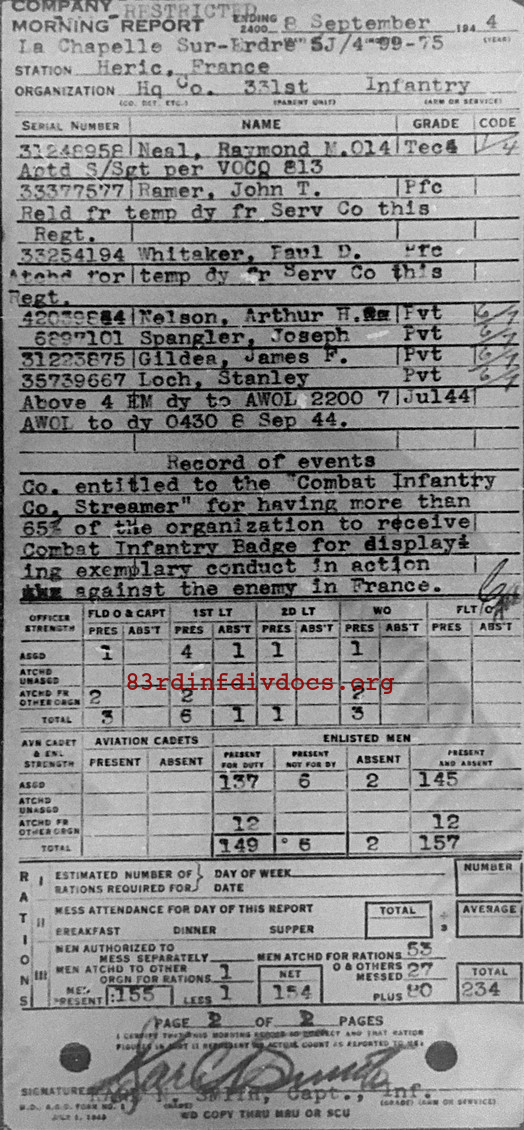 COMPANY RESTRICTED
MORNING REPORT ENDING 2400 8 September 194 4
La Chapelle Sur-Erdre SJ/4 99-75 (YEAR)
STATION Heric, France
ORGANIZATION Hq Co. 331st Infantry
(CO. DET. ETC.) (PARENT UNIT) (ARM OR SERVICE)
SERIAL NUMBER NAME GRADE CODE
31248958 Neal, Raymond M.014 Tec4
Aptd S/Sgt per VOCO 813
33377577 Ramer, John T. Pfc
Reld fr temp dy fr Serv Co this
Regt.
33254194 Whitaker, Paul D. Pfc
Atchd for temp dy fr Serv Co this
Regt.
Nelson, Arthur H. Pvt 6/7
6897101 Spangler, Joseph Pvt 6/7
31223875 Gildea, James F. Pvt 6/7
35739667 Loch, Stanley Pvt 6/7
Above 4 EM dy to AWOL 2200 7 Jul44
AWOL to dy 0430 8 Sep 44.
Record of events
Co. entitled to the "Combat Infantry
Co. Streamer" for having more than
65% of the organization to receive
Combat Infantry Badge for display-
ing exemplary conduct in action
against the enemy in France.
OFFICER STRENGTH FLD O & CAPT 1ST LT 2D LT WO FLT/O
PRES ABS'T PRES ABS'T PRES ABS'T PRES ABS'T PRES ABS'T
ASGD 1 4 1 1 1
ATCHD UNASGD
83rdinfdivdocs.org
ATCHD FR OTHER ORGN 2 2 2
TOTAL 3 6 1 1 3
AVN CADET & ENL STRENGTH AVIATION CADETS ENLISTED MEN
PRESENT ABSENT PRESENT FOR DUTY PRESENT NOT FOR DY ABSENT PRESENT AND ABSENT
ASGD 137 6 2 145
ATCHD UNASGD
ATCHD FR OTHER ORGN 12 12
TOTAL 149 6 2 157
RATIONS
I ESTIMATED NUMBER OF RATIONS REQUIRED FOR } DAY OF WEEK DATE NUMBER
II MESS ATTENDANCE FOR DAY OF THIS REPORT TOTAL ÷ 3 AVERAGE
BREAKFAST DINNER SUPPER
III MEN AUTHORIZED TO MESS SEPARATELY MEN ATCHD FOR RATIONS 53
MEN ATCHD TO OTHER ORGN FOR RATIONS 1 NET O & OTHERS MESSED 27 TOTAL
MEN PRESENT 155 LESS 1 154 PLUS 80 234
PAGE 2 OF 2 PAGES
I CERTIFY THAT THIS MORNING REPORT IS CORRECT AND THAT RATION
FIGURES IN PART III REPRESENT ACTUAL COUNT AS REPORTED TO ME
SIGNATURE SMITH, Capt., Inf.
W.D., A.G.O. FORM NO. 1 (GRADE) (ARM OR SERVICE)
JULY 1, 1943 WD COPY THRU MRU OR SCU